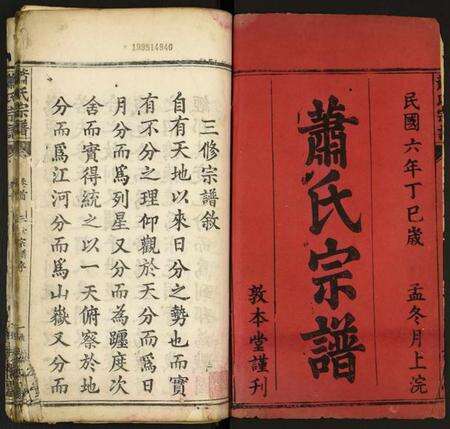 民國六年丁巳歲 孟冬月上浣
蕭氏宗譜
敦本堂謹刊
199514840
三修宗譜敘
自有天地以來日分之勢也而實
有不分之理仰觀於天分而爲日
月分而爲列星又分而為躔度次
舍而實得統之以一天俯察於地
分而爲江河分而爲山嶽又分而
蕭氏宗譜